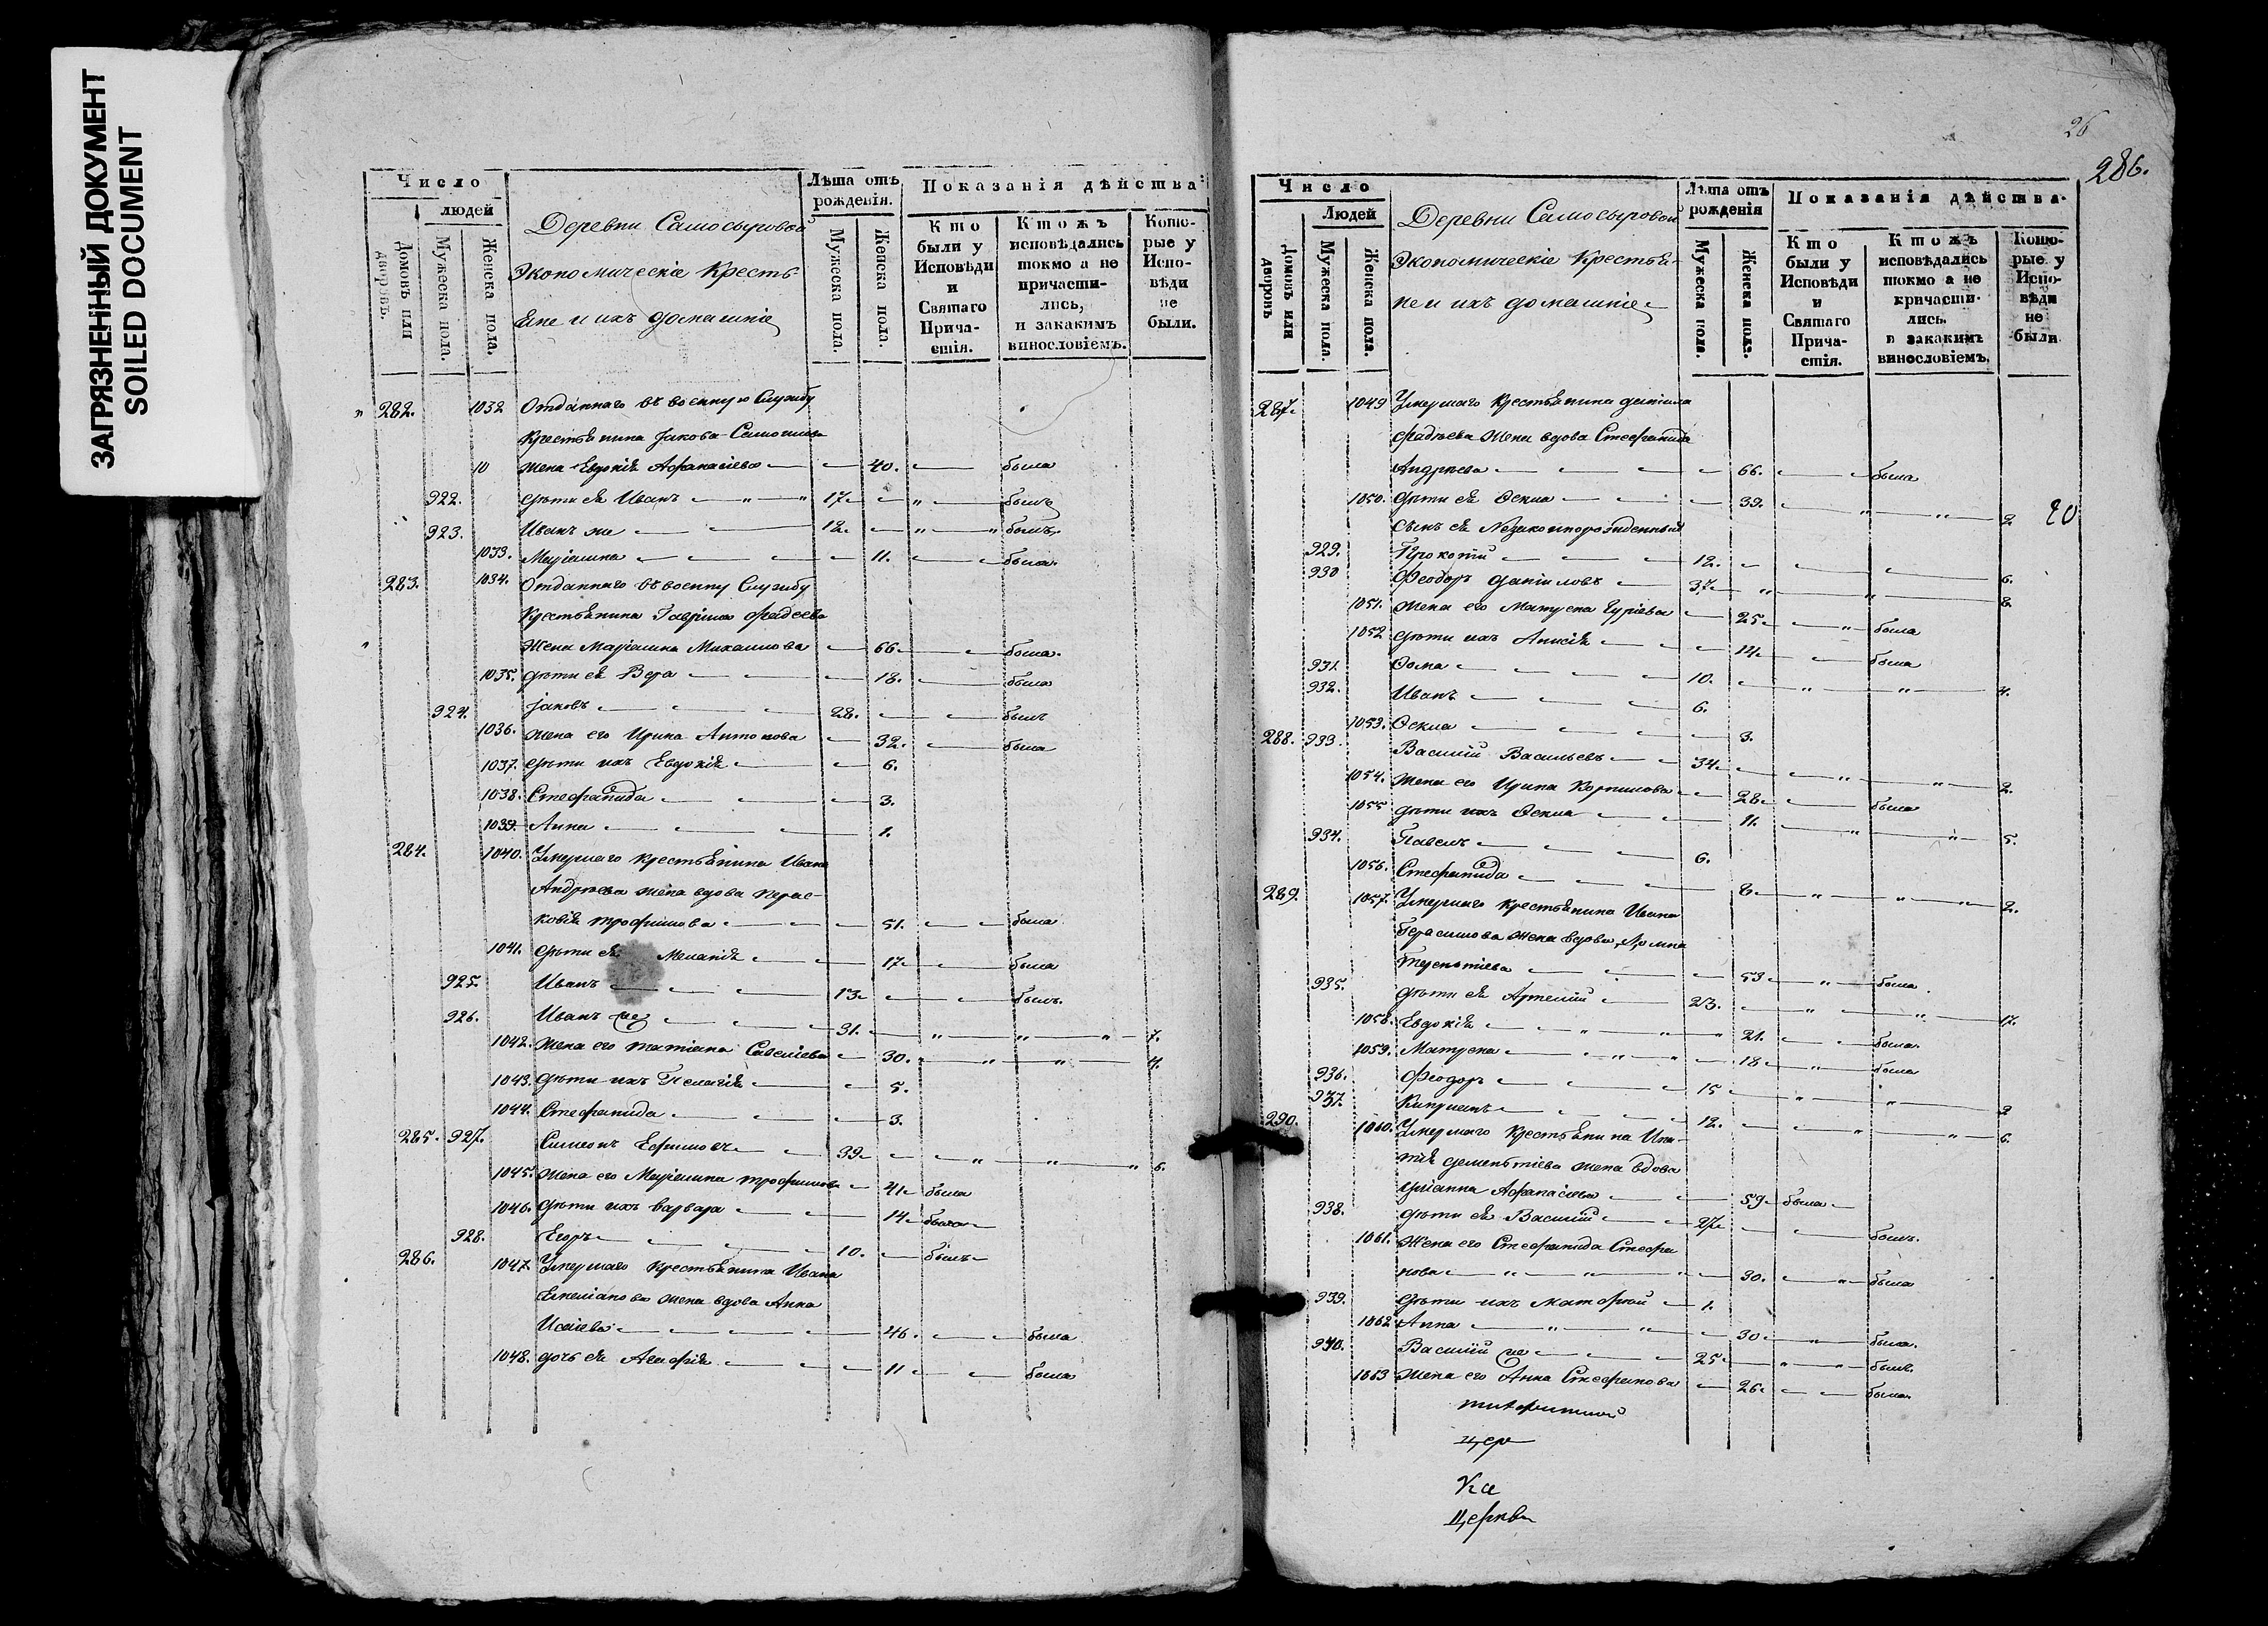 ЗАГРЯЗНЕННЫЙ ДОКУМЕНТ
SOILED DOCUMENT
Число
людей
Домовъ или дворовъ.
Мужеска пола.
Женска пола.
Деревни Самосыровой
Экономическіе Кресть-
яне и ихъ домашніе
Лѣта отъ рожденія.
Мужеска пола.
Женска пола.
Показанія дѣйства
Кто были у Исповѣди и Святаго Прича-стія.
Ктожъ исповѣдались токмо а не причасти-лись, и закакимъ винословіемъ.
Кото-рые у Испо-вѣди не были.
282. 1032 Отданнаго въ военную Службу
Крестьянина Іакова
10 жена Евдокія Афанасіева 40. была
922. дѣти ея Иванъ 17 былъ
923. Иванъ же 12. былъ
1033. Маріамна 11. была
283. 1034. Отданнаго въ военну Службу
Крестьянина Гавріила Фадеева
Жена Маріамна Михаилова 66 была
1035. дѣти ея Вера 18. была
924. Іаковъ 28. былъ
1036. жена его Ирина Антонова 32. была
1037. дѣти ихъ Евдокія 6.
1038. Стефанида 3.
1039. Анна 1.
284. 1040. Умершаго крестьянина Ивана
Андреева жена вдова Парас-
ковія трофимова 51. была
1041. дѣти ея Меланія 17 была
925. Иванъ 13 былъ
926. Иванъ же 31. 7.
1042. жена его татіана Савеліева 30. 4.
1043. дѣти ихъ Пелагія 5.
1044. Стефанида 3.
285. 927. Симеонъ Ефимовъ 39 6.
1045. жена его Маріамна трофимова 41 была
1046. дѣти ихъ варвара 14 была
928. Егоръ 10. былъ
286. 1047. Умершаго крестьянина Ивана
Емеліанова жена вдова Анна
Исаіева 46. была
1048. дочь ея Агафія 11 была
26
286.
Число
Людей
Домовъ или дворовъ
Мужеска пола.
Женска пола.
Деревни Самосыровой
Экономическіе Крестья-
не и ихъ домашніе
Лѣта отъ рожденія
Мужеска пола.
Женска пола.
Показанія дѣйства.
Кто были у Исповѣди и Святаго Прича-стія.
Ктожъ исповѣдались токмо а не причасти-лись. и закакимъ винословіемъ.
Кото-рые у Испо-вѣди не были
287. 1049 Умершаго крестьянина даніила
фадѣева жена вдова Стефанида
Андреева 66. была
1050. дѣти ея Ѳекла 39. 2
20
сынъ ея Незаконнорожденный
929. Прокопій 12. 6.
930 Феодоръ даніиловъ 37 8.
1051. жена его Матрена Гуріева 25 была
1052 дѣти ихъ Анисія 14 была
931. Ѳома 10. 4.
932. Иванъ 6.
1053. Ѳекла 3.
288. 933. Василій Васильевъ 34 2.
1054. жена его Ирина Корнилова 28 была
1055 дѣти ихъ Ѳекла 11. 5.
934. Павелъ 6.
1056. Стефанида 8 2.
289. 1057. Умершаго крестьянина Ивана
Герасимова жена вдова
Терентіева 53 была
935. дѣти ея Артемій 23. 17.
1058. Евдокія 21. была
1059. Матрена 18 была
936. Феодоръ 15 2
937. Кипріанъ 12. 6
290. 1060. Умершаго крестьянина Ипа-
тія дементіева жена вдова
Уліанна Афанасіева 59 была
938. дѣти ея Василій 27 былъ.
1061. Жена его Стефанида Стефа
нова 30. была
939. дѣти ихъ матфей 1.
1062 Анна 30 была.
940. Василій же 25 былъ.
1063 жена его Анна Стефанова 26. была
цер
Ка
Церкви